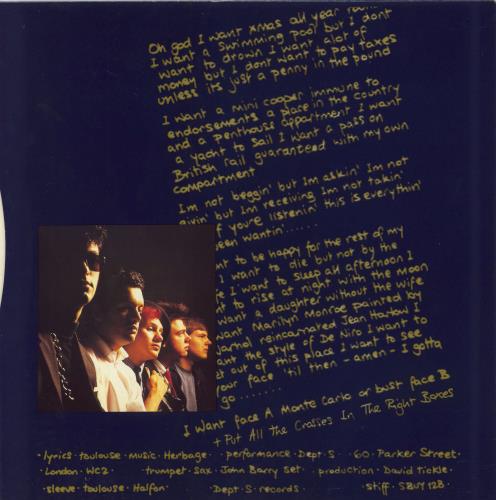 Oh god I want xmas all year round
I want a swimming pool but I dont
want to drown I want alot of
money but I dont want to pay taxes
unless its just a penny in the pound
I want a mini cooper immune to
endorsements a place in the country
and a penthouse appartment I want
a yacht to sail I want a pass on
British rail guaranteed with my own
compartment
I'm not beggin' but Im askin' Im not
givin' but Im receiving Im not takin'
if you're listenin' this is everythin'
been wantin'......
to be happy for the rest of my
I want to die but not by the
I want to sleep all afternoon I
to rise at night with the moon
want a daughter without the wife
Marilyn Monroe painted by
reincarnated Jean Harlow I
want the style of De Niro I want to
get out of this place I want to see
your face 'til then -amen- I gotta
go.......
I Want face A Monte Carlo or bust face B
+ Put All the Crosses In The Right Boxes
·lyrics · toulouse · music · Herbage · performance · Dept · S · 60 · Parker Street ·
London · WC2 · trumpet · Sax · John Barry Set · production · David Tickle ·
sleeve · toulouse · Halfon · Dept · S · records · Stiff · SBUY 128 ·